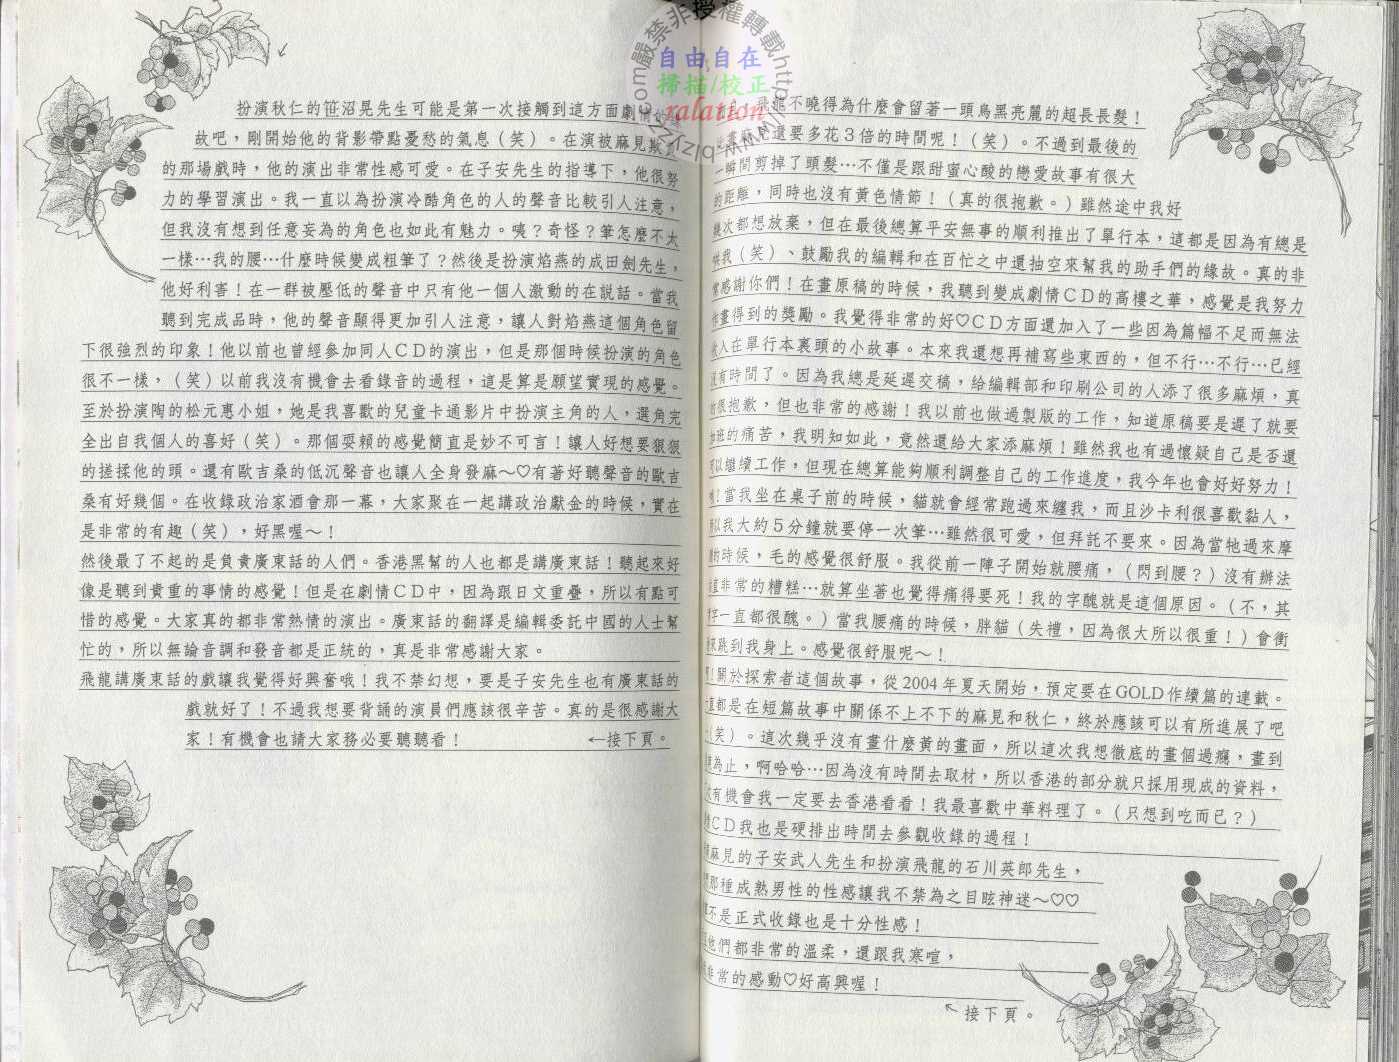 飛龍不曉得為什麼會留著一頭烏黑亮麗的超長長髮！
畫麻煩還要多花3倍的時間呢！（笑）。不過到最後的
一瞬間剪掉了頭髮…不僅是跟甜蜜心酸的戀愛故事有很大
的距離，同時也沒有黃色情節！（真的很抱歉。）雖然途中我好
幾次都想放棄，但在最後總算平安無事的順利推出了單行本，這都是因為有總是
哄我（笑）、鼓勵我的編輯和在百忙之中還抽空來幫我的助手們的緣故。真的非
常感謝你們！在畫原稿的時候，我聽到變成劇情CD的高樓之華，感覺是我努力
作畫得到的獎勵。我覺得非常的好♡CD方面還加入了一些因為篇幅不足而無法
放入在單行本裏頭的小故事。本來我還想再補寫些東西的，但不行…不行…已經
沒有時間了。因為我總是延遲交稿，給編輯部和印刷公司的人添了很多麻煩，真
的很抱歉，但也非常的感謝！我以前也做過製版的工作，知道原稿要是遲了就要
加班的痛苦，我明知如此，竟然還給大家添麻煩！雖然我也有過懷疑自己是否還
可以繼續工作，但現在總算能夠順利調整自己的工作進度，我今年也會好好努力！
！當我坐在桌子前的時候，貓就會經常跑過來纏我，而且沙卡利很喜歡黏人，
所以我大約5分鐘就要停一次筆…雖然很可愛，但拜託不要來。因為當牠過來摩
的時候，毛的感覺很舒服。我從前一陣子開始就腰痛，（閃到腰？）沒有辦法
直非常的糟糕…就算坐著也覺得痛得要死！我的字醜就是這個原因。（不，其
字一直都很醜。）當我腰痛的時候，胖貓（失禮，因為很大所以很重！）會衝
來跳到我身上。感覺很舒服呢～！
！關於探索者這個故事，從2004年夏天開始，預定要在GOLD作續篇的連載。
一直都是在短篇故事中關係不上不下的麻見和秋仁，終於應該可以有所進展了吧
（笑）。這次幾乎沒有畫什麼黃的畫面，所以這次我想徹底的畫個過癮，畫到
為止，啊哈哈…因為沒有時間去取材，所以香港的部分就只採用現成的資料，
次有機會我一定要去香港看看！我最喜歡中華料理了。（只想到吃而已？）
CD我也是硬排出時間去參觀收錄的過程！
麻見的子安武人先生和扮演飛龍的石川英郎先生，
那種成熟男性的性感讓我不禁為之目眩神迷～♡♡
不是正式收錄也是十分性感！
他們都非常的溫柔，還跟我寒喧，
非常的感動♡好高興喔！
←接下頁。
扮演秋仁的笹沼晃先生可能是第一次接觸到這方面劇情的緣
故吧，剛開始他的背影帶點憂愁的氣息（笑）。在演被麻見欺負
的那場戲時，他的演出非常性感可愛。在子安先生的指導下，他很努
力的學習演出。我一直以為扮演冷酷角色的人的聲音比較引人注意，
但我沒有想到任意妄為的角色也如此有魅力。咦？奇怪？筆怎麼不太
一樣…我的腰…什麼時候變成粗筆了？然後是扮演焰燕的成田劍先生，
他好利害！在一群被壓低的聲音中只有他一個人激動的在說話。當我
聽到完成品時，他的聲音顯得更加引人注意，讓人對焰燕這個角色留
下很強烈的印象！他以前也曾經參加同人CD的演出，但是那個時候扮演的角色
很不一樣，（笑）以前我沒有機會去看錄音的過程，這是算是願望實現的感覺。
至於扮演陶的松元惠小姐，她是我喜歡的兒童卡通影片中扮演主角的人，選角完
全出自我個人的喜好（笑）。那個耍賴的感覺簡直是妙不可言！讓人好想要狠狠
的搓揉他的頭。還有歐吉桑的低沉聲音也讓人全身發麻～♡有著好聽聲音的歐吉
桑有好幾個。在收錄政治家酒會那一幕，大家聚在一起講政治獻金的時候，實在
是非常的有趣（笑），好黑喔～！
然後最了不起的是負責廣東話的人們。香港黑幫的人也都是講廣東話！聽起來好
像是聽到貴重的事情的感覺！但是在劇情CD中，因為跟日文重疊，所以有點可
惜的感覺。大家真的都非常熱情的演出。廣東話的翻譯是編輯委託中國的人士幫
忙的，所以無論音調和發音都是正統的，真是非常感謝大家。
飛龍講廣東話的戲讓我覺得好興奮哦！我不禁幻想，要是子安先生也有廣東話的
戲就好了！不過我想要背誦的演員們應該很辛苦。真的是很感謝大
家！有機會也請大家務必要聽聽看！
←接下頁。
嚴禁非授權轉載
自由自在
掃描/校正
ralation